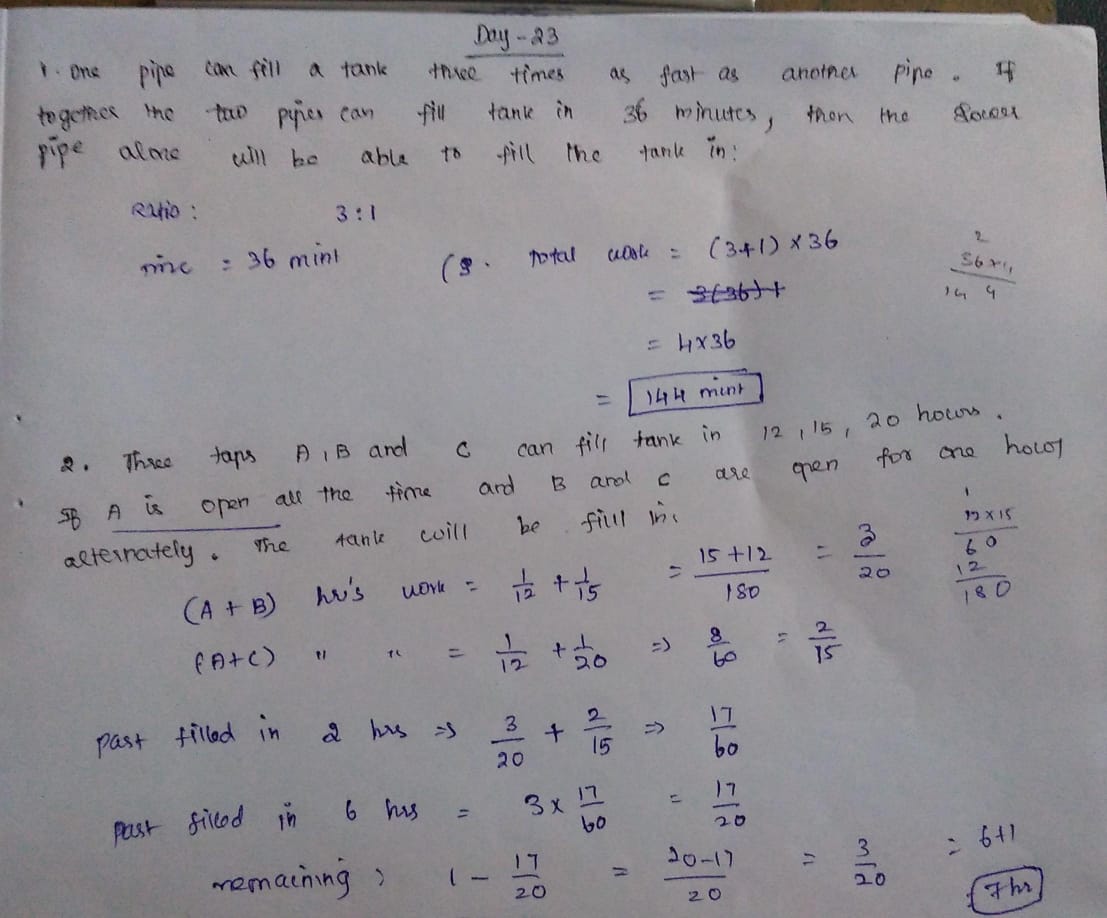 Day - 23
1. One pipe can fill a tank three times as fast as another pipe. If
together the two pipes can fill tank in 36 minutes, then the slower
pipe alone will be able to fill the tank in:
Ratio : 3:1
= 36 mint ( total work = (3+1) × 36
= 3(36)+
= 4×36
= 144 mint
2. Three taps A, B and C can fill tank in 12, 15, 20 hours.
If A is open all the time and B and C are open for one hour
alternately. The tank will be fill in:
(A + B) hr's work = 1/12 + 1/15 = 15+12/180 = 3/20
12×15
60
12
180
(A+C) " " = 1/12 + 1/20 => 8/60 = 2/15
part filled in 2 hrs => 3/20 + 2/15 => 17/60
part filled in 6 hrs = 3× 17/60 = 17/20
remaining ; 1 - 17/20 = 20-17/20 = 3/20 = 6+1
7hr